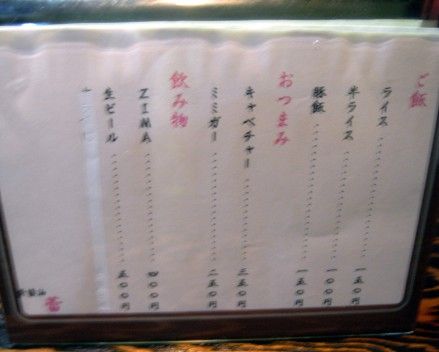 ご飯
ライス 一五〇円
半ライス 一〇〇円
豚飯 一五〇円
おつまみ
キャベチャー 三五〇円
ミミガー 二五〇円
飲み物
ZIMA 四〇〇円
生ビール 五〇〇円